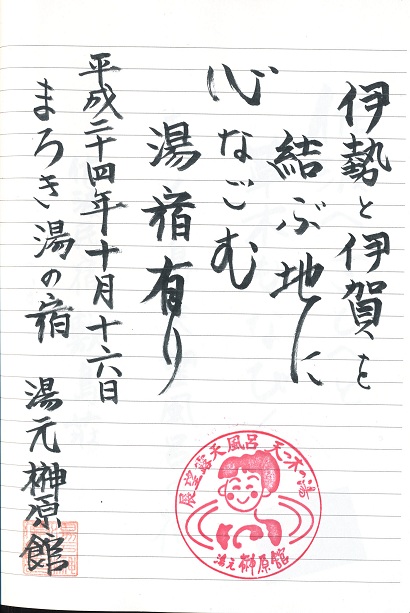 伊勢と伊賀を
結ぶ地に
心なごむ
湯宿有り
平成二十四年十月十六日
まろき湯の宿 湯元榊原館
展望露天風呂 天つ木っ湯
湯元榊原館